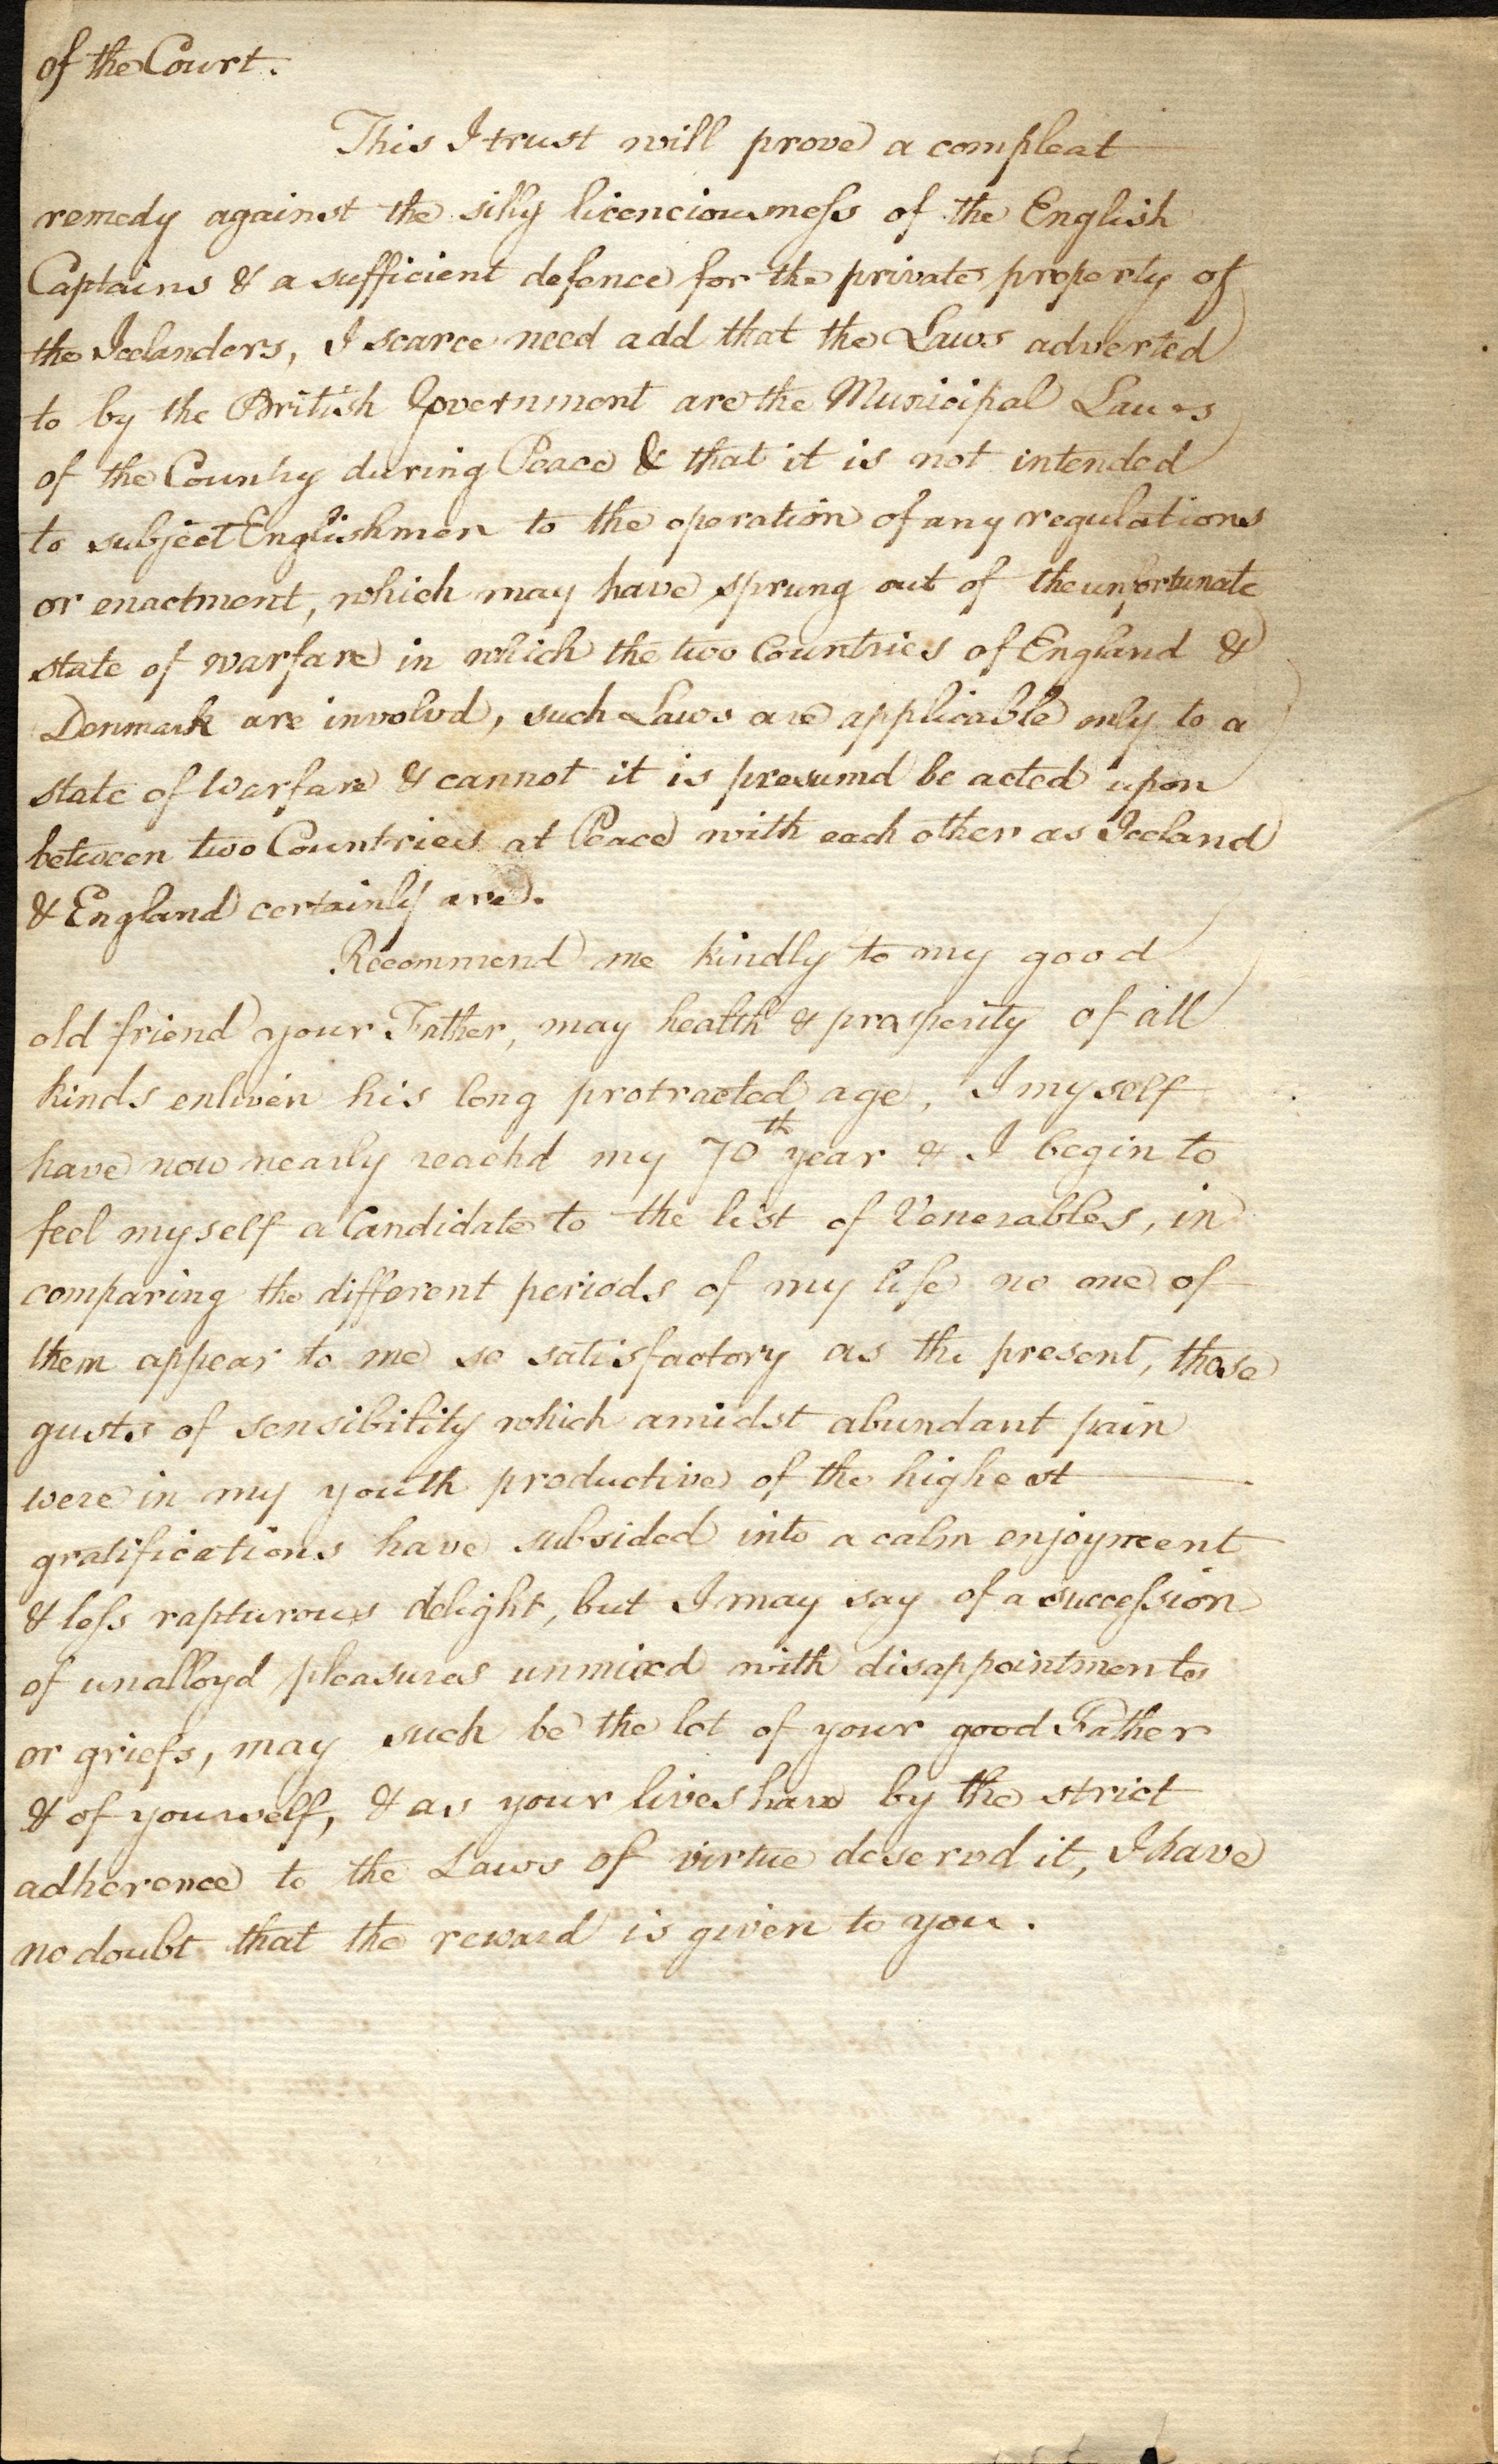 of the Court.
This I trust will prove a compleat
remedy against the silly licenciousness of the English
Captains & a sufficient defence for the private property of
the Icelanders, I scarce need add that the Laws adverted
to by the British Government are the Municipal Laws
of the Country during Peace & that it is not intended
to subject Englishmen to the operation of any regulations
or enactment, which may have sprung out of the unfortunate
state of warfare in which the two Countries of England &
Denmark are involvd, such Laws are applicable only to a
state of Warfare & cannot it is presumd be acted upon
between two Countries at Peace with each other as Iceland
& England certainly are.
Recommend me kindly to my good
old friend your Father, may health & prosperity of all
kinds enliven his long protracted age, I myself
have now nearly reachd my 70th year & I begin to
feel myself a Candidate to the list of Venerables, in
comparing the different periods of my life no one of
them appear to me so satisfactory as the present, those
gusts of sensibility which amidst abundant pain
were in my youth productive of the highest
gratifications have subsided into a calm enjoyment
& less rapturous delight, but I may say of a succession
of unalloyd pleasures unmixd with disappointments
or griefs, may such be the lot of your good Father
& of yourself, & as your lives have by the strict
adherence to the Laws of virtue deservd it, I have
no doubt that the reward is given to you.